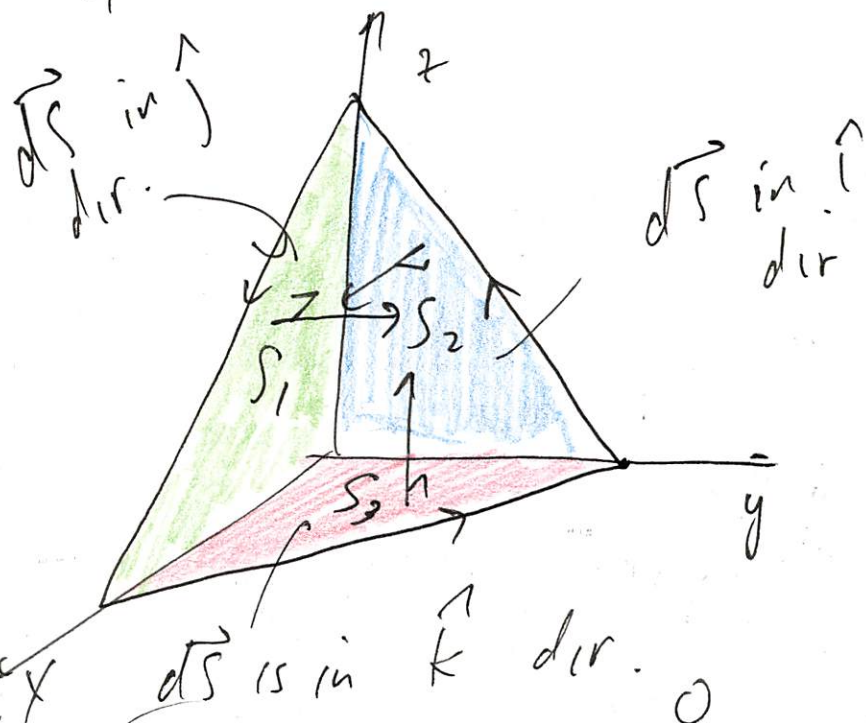 z
d⃗S in ĵ
dir.
d⃗S in î
dir
S₂
S₁
S₃
y
x
d⃗S is in k̂ dir.
O